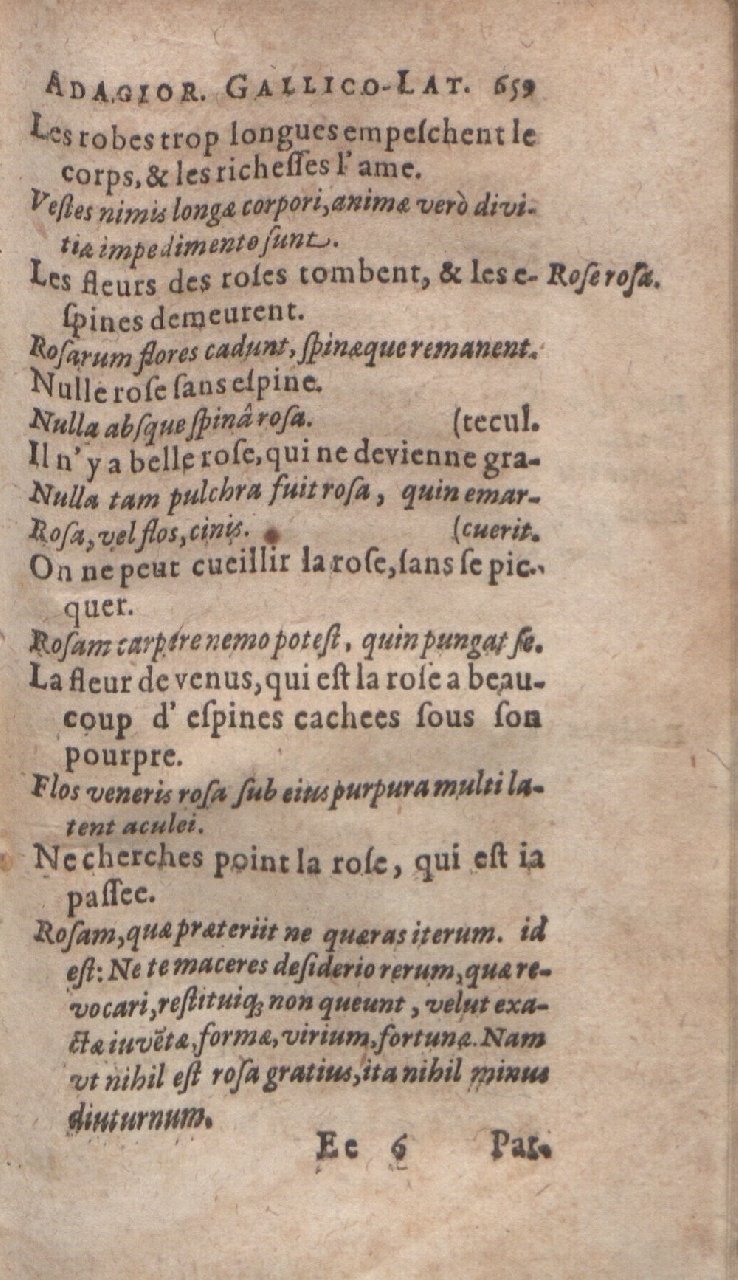 ADAGIOR. GALLICO-LAT. 659
Les robes trop longues empeſchent le
corps, & les richeſſes l' ame.
Veſtes nimis longæ corpori, animæ verò divi-
tiæ impedimento ſunt.
Les fleurs des roſes tombent, & les e- Roſe roſæ.
ſpines demeurent.
Roſarum flores cadunt, ſpinæque remanent.
Nulle roſe ſans eſpine.
Nulla abſque ſpinâ roſa. (tecul.
Il n' y a belle roſe, qui ne devienne gra-
Nulla tam pulchra fuit roſa, quin emar-
Roſa, vel flos, cinis. (cuerit.
On ne peut cueillir la roſe, ſans ſe pic-
quer.
Roſam carpere nemo poteſt, quin pungat ſe.
La fleur de venus, qui eſt la roſe a beau-
coup d' eſpines cachees ſous ſon
pourpre.
Flos veneris roſa ſub eius purpura multi la-
tent aculei.
Ne cherches point la roſe, qui eſt ia
paſſee.
Roſam, quæ præteriit ne quæras iterum. id
eſt: Ne te maceres deſiderio rerum, quæ re-
vocari, reſtituiq; non queunt, velut exa-
ctæ iuvẽtæ, formæ, virium, fortunæ. Nam
vt nihil eſt roſa gratius, ita nihil minus
diuturnum.
Ee 6 Par.